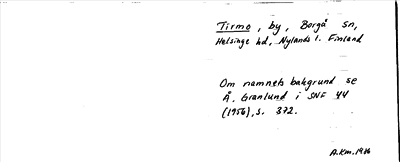 Tirmo, by, Borgå sn,
Helsinge hd, Nylands l. Finland
Om namnets bakgrund se
Å. Granlund i SNF 44
(1956), s. 372.
A.Km. 1986